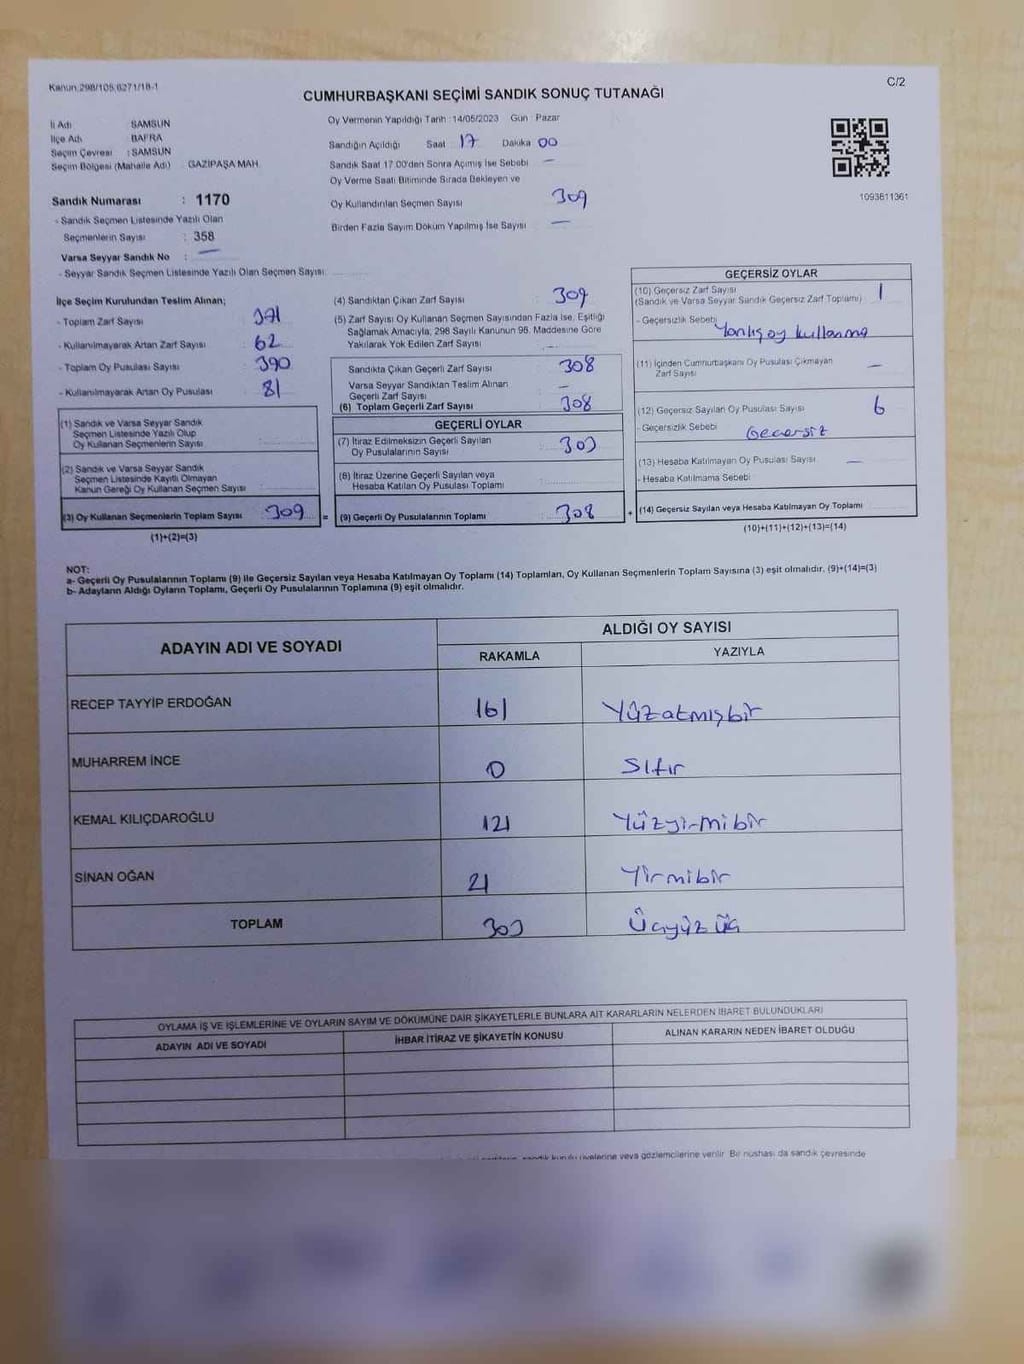 Kanun:298/105,6271/18-1
C/2
CUMHURBAŞKANI SEÇİMİ SANDIK SONUÇ TUTANAĞI
İl Adı SAMSUN
İlçe Adı BAFRA
Seçim Çevresi : SAMSUN
Seçim Bölgesi (Mahalle Adı) : GAZİPAŞA MAH.
Oy Vermenin Yapıldığı Tarih : 14/05/2023 Gün : Pazar
Sandığın Açıldığı Saat 17 Dakika 00
Sandık Saat 17.00'den Sonra Açılmış İse Sebebi —
Oy Verme Saati Bitiminde Sırada Bekleyen ve
Oy Kullandırılan Seçmen Sayısı 309
Birden Fazla Sayım Döküm Yapılmış İse Sayısı —
1093811361
Sandık Numarası : 1170
- Sandık Seçmen Listesinde Yazılı Olan
Seçmenlerin Sayısı : 358
Varsa Seyyar Sandık No : —
- Seyyar Sandık Seçmen Listesinde Yazılı Olan Seçmen Sayısı:
İlçe Seçim Kurulundan Teslim Alınan;
- Toplam Zarf Sayısı 371
- Kullanılmayarak Artan Zarf Sayısı 62
- Toplam Oy Pusulası Sayısı 390
- Kullanılmayarak Artan Oy Pusulası 81
(1) Sandık ve Varsa Seyyar Sandık
Seçmen Listesinde Yazılı Olup
Oy Kullanan Seçmenlerin Sayısı
(2) Sandık ve Varsa Seyyar Sandık
Seçmen Listesinde Kayıtlı Olmayan
Kanun Gereği Oy Kullanan Seçmen Sayısı
(3) Oy Kullanan Seçmenlerin Toplam Sayısı 309 =
(1)+(2)=(3)
(4) Sandıktan Çıkan Zarf Sayısı 309
(5) Zarf Sayısı Oy Kullanan Seçmen Sayısından Fazla İse, Eşitliği
Sağlamak Amacıyla, 298 Sayılı Kanunun 98. Maddesine Göre
Yakılarak Yok Edilen Zarf Sayısı
Sandıkta Çıkan Geçerli Zarf Sayısı 308
Varsa Seyyar Sandıktan Teslim Alınan
Geçerli Zarf Sayısı —
(6) Toplam Geçerli Zarf Sayısı 308
GEÇERLİ OYLAR
(7) İtiraz Edilmeksizin Geçerli Sayılan
Oy Pusulalarının Sayısı 303
(8) İtiraz Üzerine Geçerli Sayılan veya
Hesaba Katılan Oy Pusulası Toplamı
(9) Geçerli Oy Pusulalarının Toplamı 308 +
GEÇERSİZ OYLAR
(10) Geçersiz Zarf Sayısı 1
(Sandık ve Varsa Seyyar Sandık Geçersiz Zarf Toplamı)
- Geçersizlik Sebebi Yanlış oy kullanma
(11) İçinden Cumhurbaşkanı Oy Pusulası Çıkmayan
Zarf Sayısı —
(12) Geçersiz Sayılan Oy Pusulası Sayısı 6
- Geçersizlik Sebebi Geçersiz
(13) Hesaba Katılmayan Oy Pusulası Sayısı —
- Hesaba Katılmama Sebebi
(14) Geçersiz Sayılan veya Hesaba Katılmayan Oy Toplamı
(10)+(11)+(12)+(13)=(14)
NOT:
a- Geçerli Oy Pusulalarının Toplamı (9) ile Geçersiz Sayılan veya Hesaba Katılmayan Oy Toplamı (14) Toplamları, Oy Kullanan Seçmenlerin Toplam Sayısına (3) eşit olmalıdır. (9)+(14)=(3)
b- Adayların Aldığı Oyların Toplamı, Geçerli Oy Pusulalarının Toplamına (9) eşit olmalıdır.
ADAYIN ADI VE SOYADI ALDIĞI OY SAYISI
RAKAMLA YAZIYLA
RECEP TAYYİP ERDOĞAN 161 Yüzatmışbir
MUHARREM İNCE 0 Sıfır
KEMAL KILIÇDAROĞLU 121 Yüzyirmibir
SİNAN OĞAN 21 Yirmibir
TOPLAM 303 Üçyüz üç
OYLAMA İŞ VE İŞLEMLERİNE VE OYLARIN SAYIM VE DÖKÜMÜNE DAİR ŞİKAYETLERLE BUNLARA AİT KARARLARIN NELERDEN İBARET BULUNDUKLARI
ADAYIN ADI VE SOYADI İHBAR İTİRAZ VE ŞİKAYETİN KONUSU ALINAN KARARIN NEDEN İBARET OLDUĞU
sandık kurulu üyelerine veya gözlemcilerine verilir. Bir nüshası da sandık çevresinde